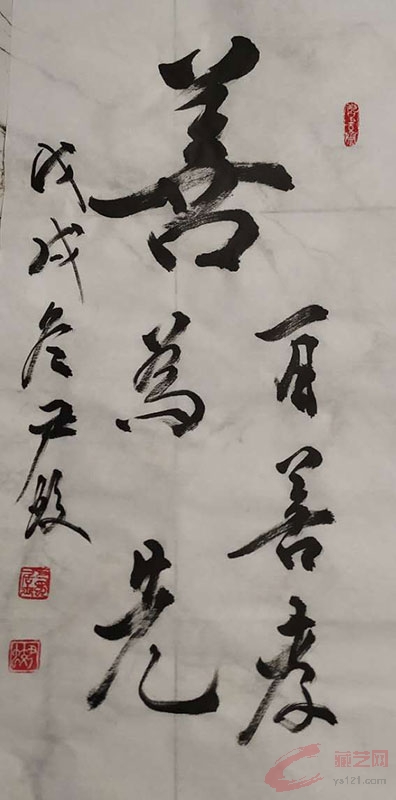 百善孝
善為先
戊戌冬尹
藏艺网
ys121.com